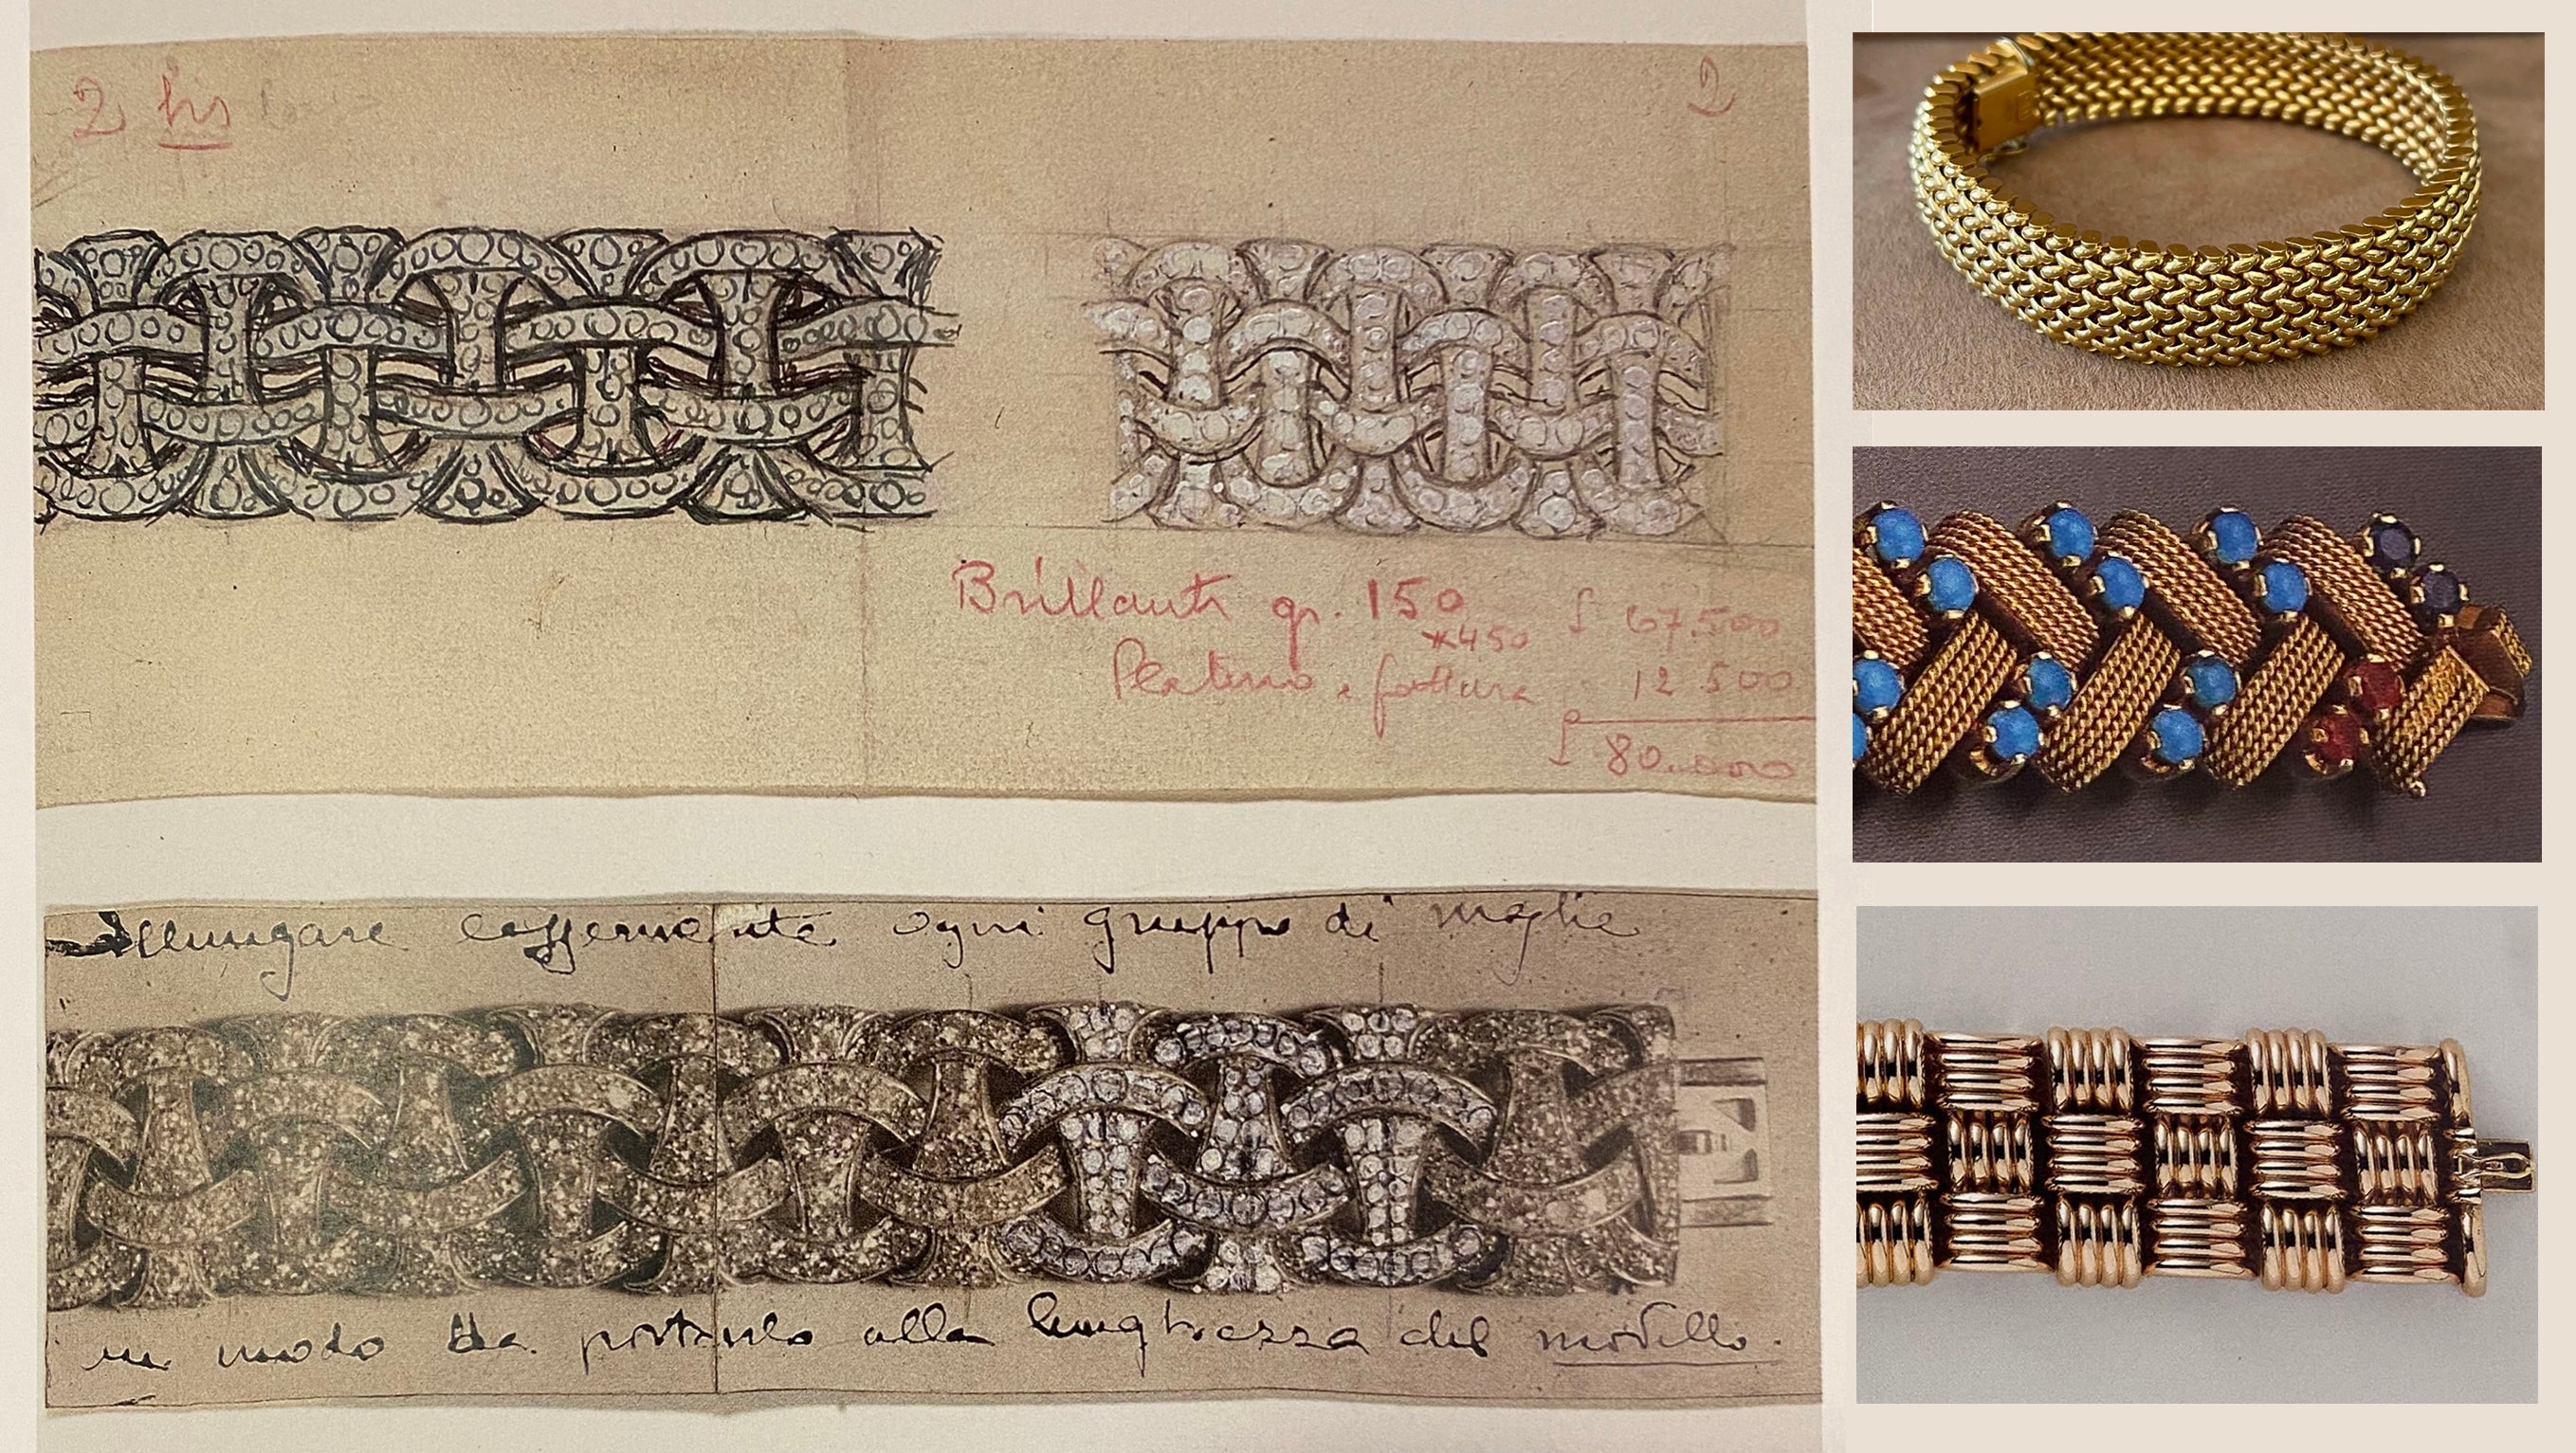 2 bis
2
Brillanti gr. 150
x450 £ 67.500
Platino e fattura 12 500
£ 80.000
Allungare leggermente ogni gruppo di maglie
in modo da portarlo alla lunghezza del modello.